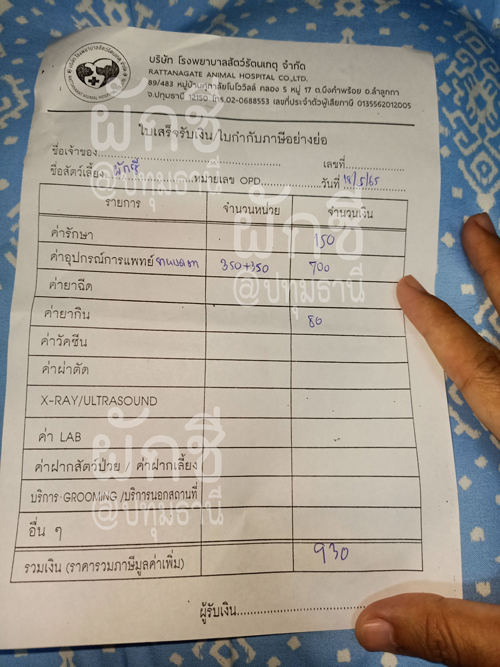 บริษัท โรงพยาบาลสัตว์รัตนเกตุ จำกัด
RATTANAGATE ANIMAL HOSPITAL CO.,LTD.
89/483 หมู่บ้านภูมาลัยโนโววิลล์ คลอง 5 หมู่ 17 ต.บึงคำพร้อย อ.ลำลูกกา
จ.ปทุมธานี 12150 โทร.02-0688553 เลขที่ประจำตัวผู้เสียภาษี 0135562012005
ใบเสร็จรับเงิน/ใบกำกับภาษีอย่างย่อ
ชื่อเจ้าของ
เลขที่
ชื่อสัตว์เลี้ยง ผักชี หมายเลข OPD วันที่ 18/5/65
รายการ จำนวนหน่วย จำนวนเงิน
ค่ารักษา 150
ค่าอุปกรณ์การแพทย์ 350+350 700
ค่ายาฉีด
ค่ายากิน 80
ค่าวัคซีน
ค่าผ่าตัด
X-RAY/ULTRASOUND
ค่า LAB
ค่าฝากสัตว์ป่วย / ค่าฝากเลี้ยง
บริการ GROOMING /บริการนอกสถานที่
อื่น ๆ
รวมเงิน (ราคารวมภาษีมูลค่าเพิ่ม) 930
ผู้รับเงิน
ผักชี
@ปทุมธานี
ผักชี
@ปทุมธานี
ผักชี
@ปทุมธานี